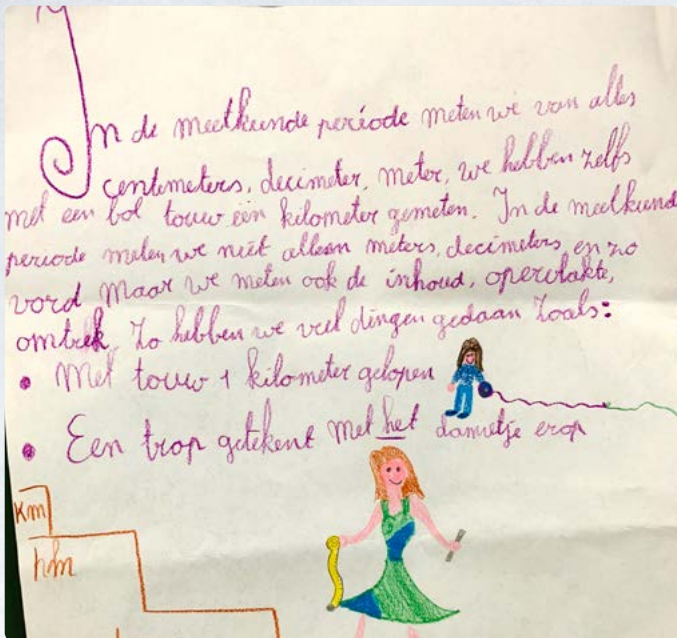 In de meetkunde periode meten we van alles
centimeters, decimeter, meter, we hebben zelfs
met een bol touw een kilometer gemeten. In de meetkund
periode meten we niet alleen meters, decimeters en zo
vord maar we meten ook de inhoud, opervlakte,
omtrek. Zo hebben we veel dingen gedaan zoals:
• Met touw 1 kilometer gelopen
• Een trop getekent met het dametje erop
km
hm